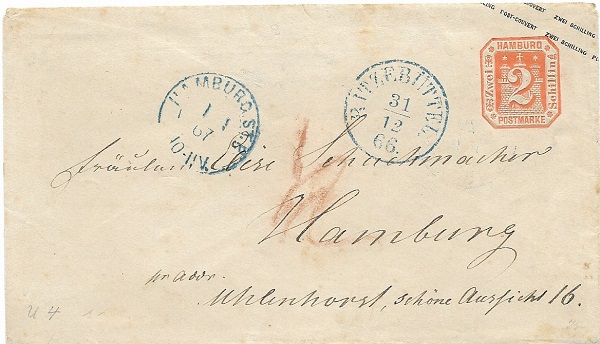 ZWEI SCHILLING
POST-COUVERT ZWEI SCHILLING
POST-COUVERT ZWEI SCHILLING
HAMBURG
Zwei 2 Schilling
POSTMARKE
HAMBURG. St. P.
1 1
67
10-11V.
RITZEBÜTTEL
31
12
66.
Fräulein Schuhmacher
Hamburg
pr addr.
Uhlenhorst, schöne Aussicht 16.
U 4